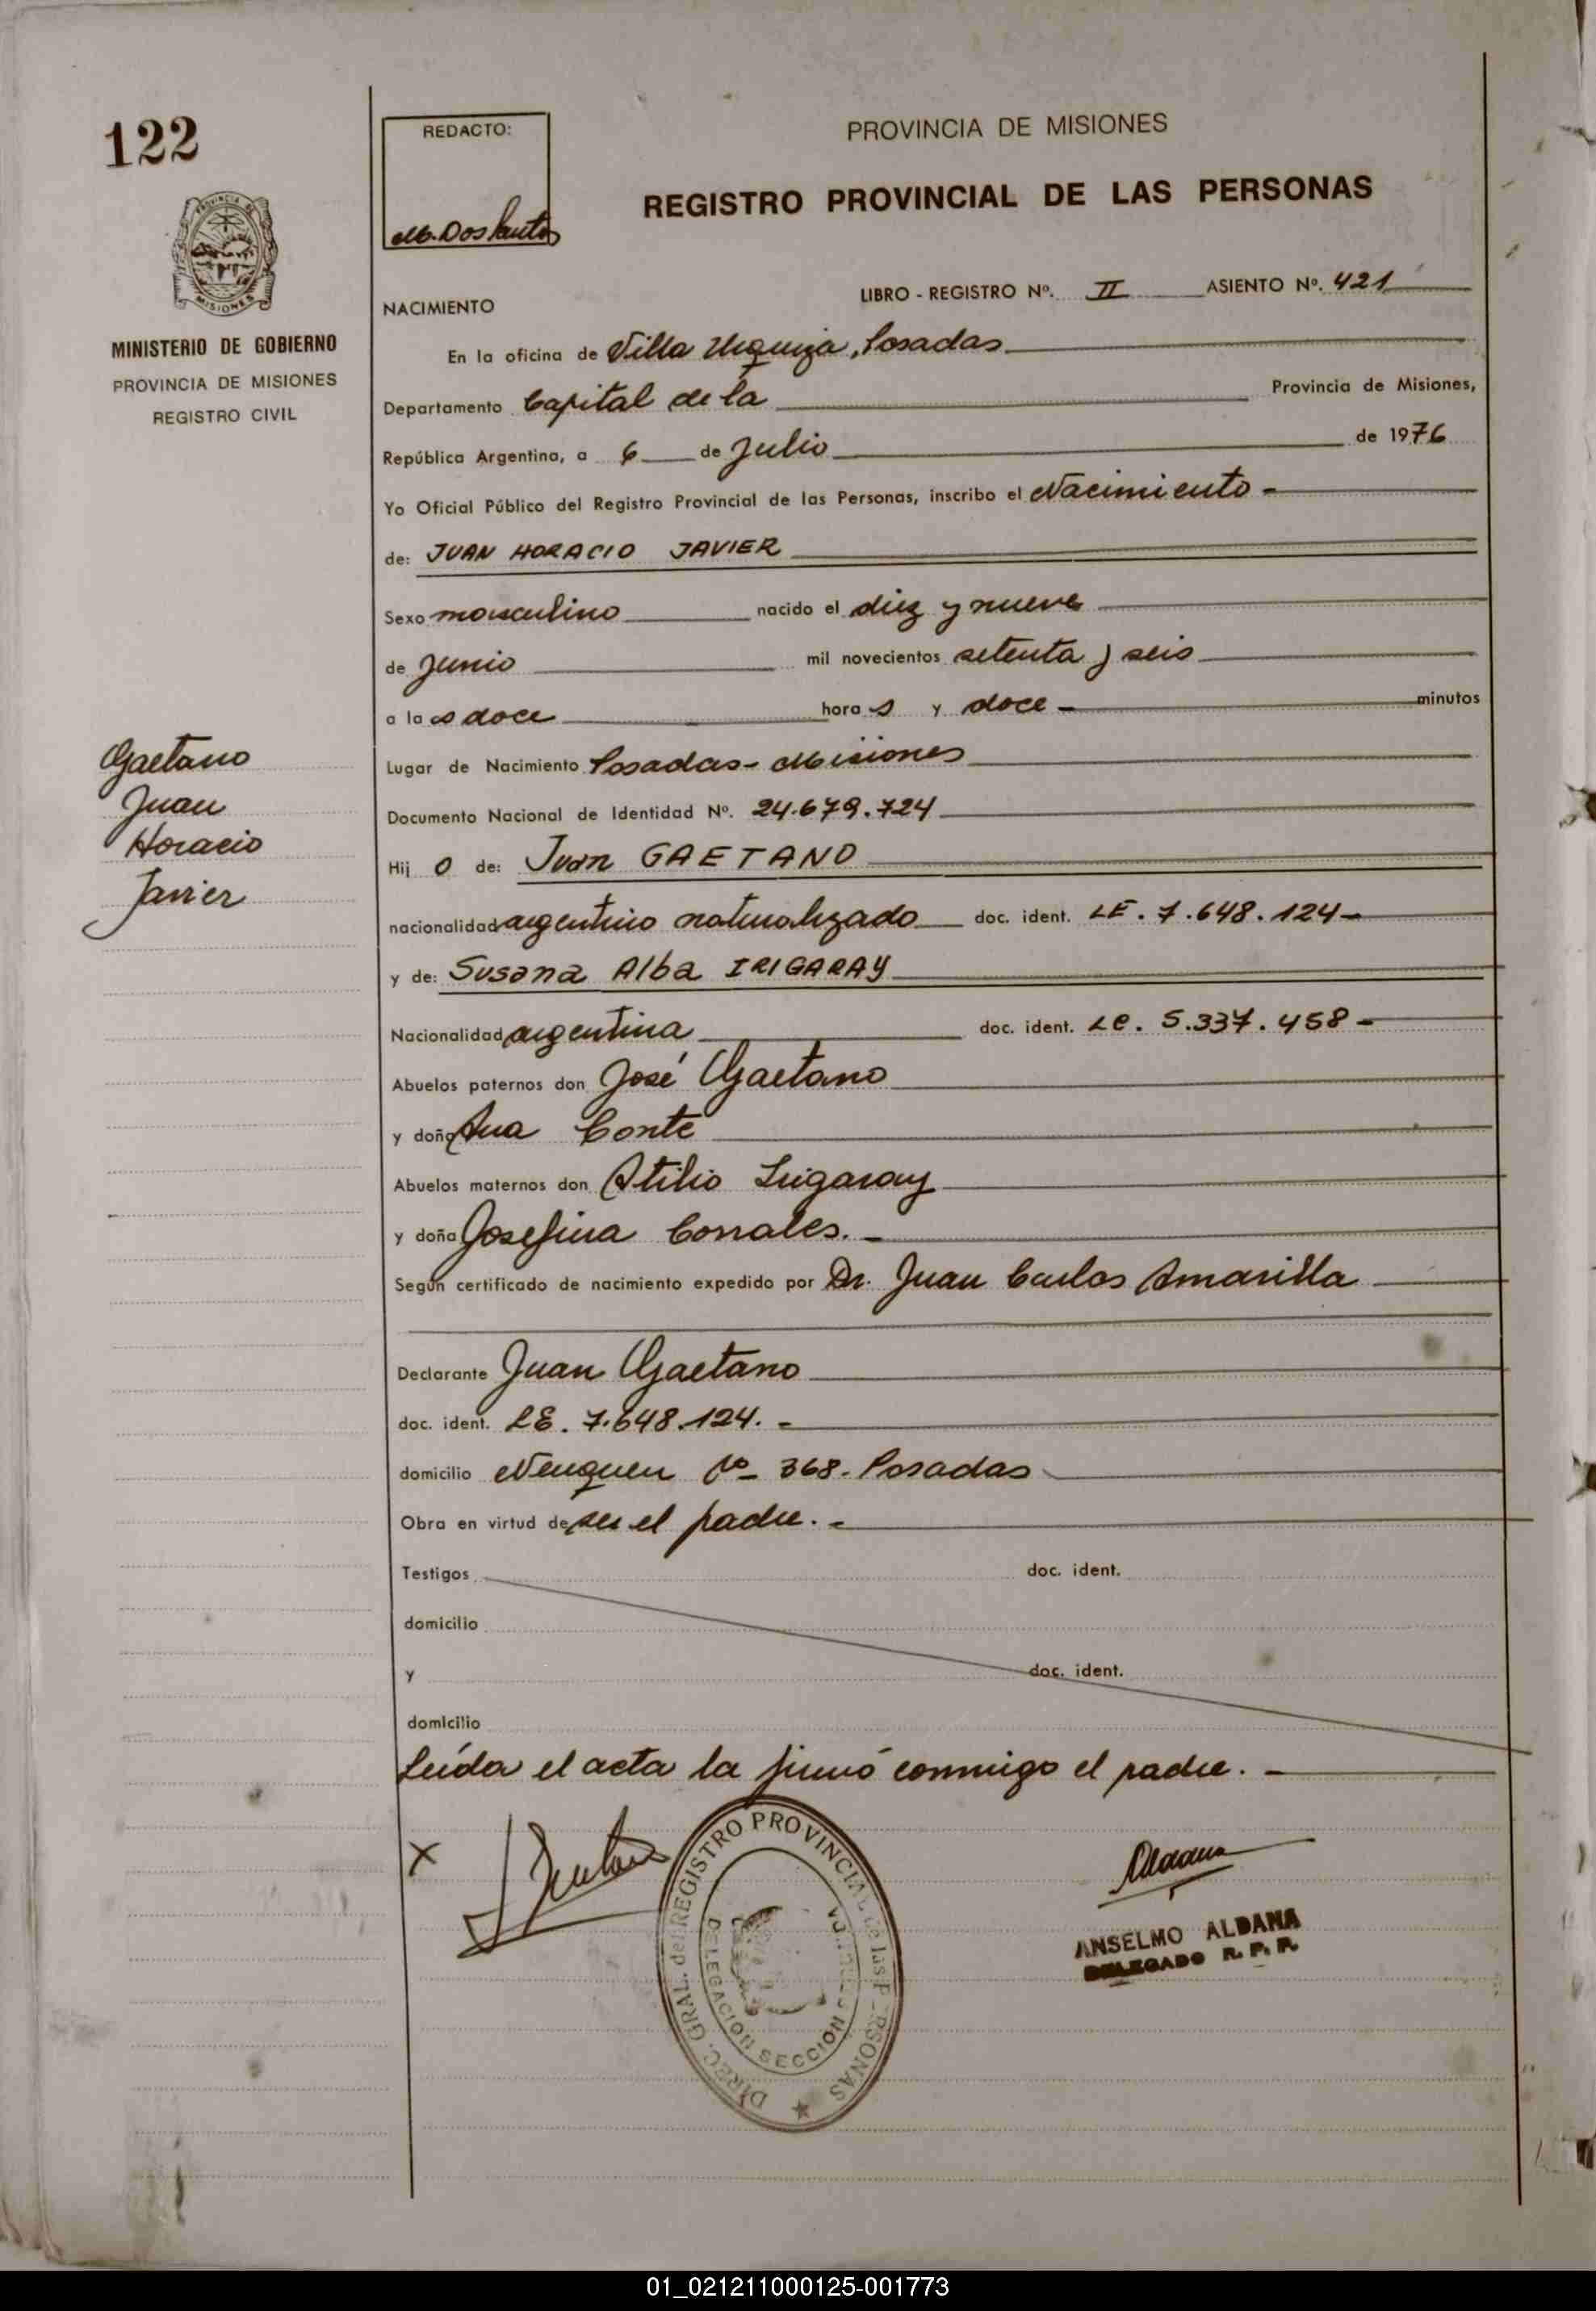 122
REDACTO:
M. Dos Santos
PROVINCIA DE MISIONES
REGISTRO PROVINCIAL DE LAS PERSONAS
MISIONES
MINISTERIO DE GOBIERNO
PROVINCIA DE MISIONES
REGISTRO CIVIL
LIBRO - REGISTRO Nº. II ASIENTO Nº. 421
NACIMIENTO
En la oficina de Villa Urquiza, Posadas
Departamento Capital de la Provincia de Misiones,
República Argentina, a 6 de Julio de 1976
Yo Oficial Público del Registro Provincial de las Personas, inscribo el Nacimiento -
de: JUAN HORACIO JAVIER
Sexo masculino nacido el diez y nueve
de Junio mil novecientos setenta y seis
a las doce horas y doce - minutos
Gaetano
Juan
Horacio
Javier
Lugar de Nacimiento Posadas - Misiones
Documento Nacional de Identidad Nº. 24.679.724
Hijo de: Juan GAETANO
nacionalidad argentino naturalizado doc. ident. LE. 7.648.124 -
y de: Susana Alba IRIGARAY
Nacionalidad argentina doc. ident. LC. 5.337.458 -
Abuelos paternos don José Gaetano
y doña Ana Conte
Abuelos maternos don Atilio Irigaray
y doña Josefina Corrales. -
Según certificado de nacimiento expedido por Dr. Juan Carlos Amarilla
Declarante Juan Gaetano
doc. ident. LE. 7.648.124. -
domicilio Neuquen Nº 368 - Posadas
Obra en virtud de ser el padre. -
Testigos doc. ident.
domicilio
y doc. ident.
domicilio
Leída el acta la firmó conmigo el padre. -
X
DIREC. GRAL. del REGISTRO PROVINCIAL de las PERSONAS
DELEGACION SECCION
Aldana
ANSELMO ALDANA
DELEGADO R. P. P.
01_021211000125-001773